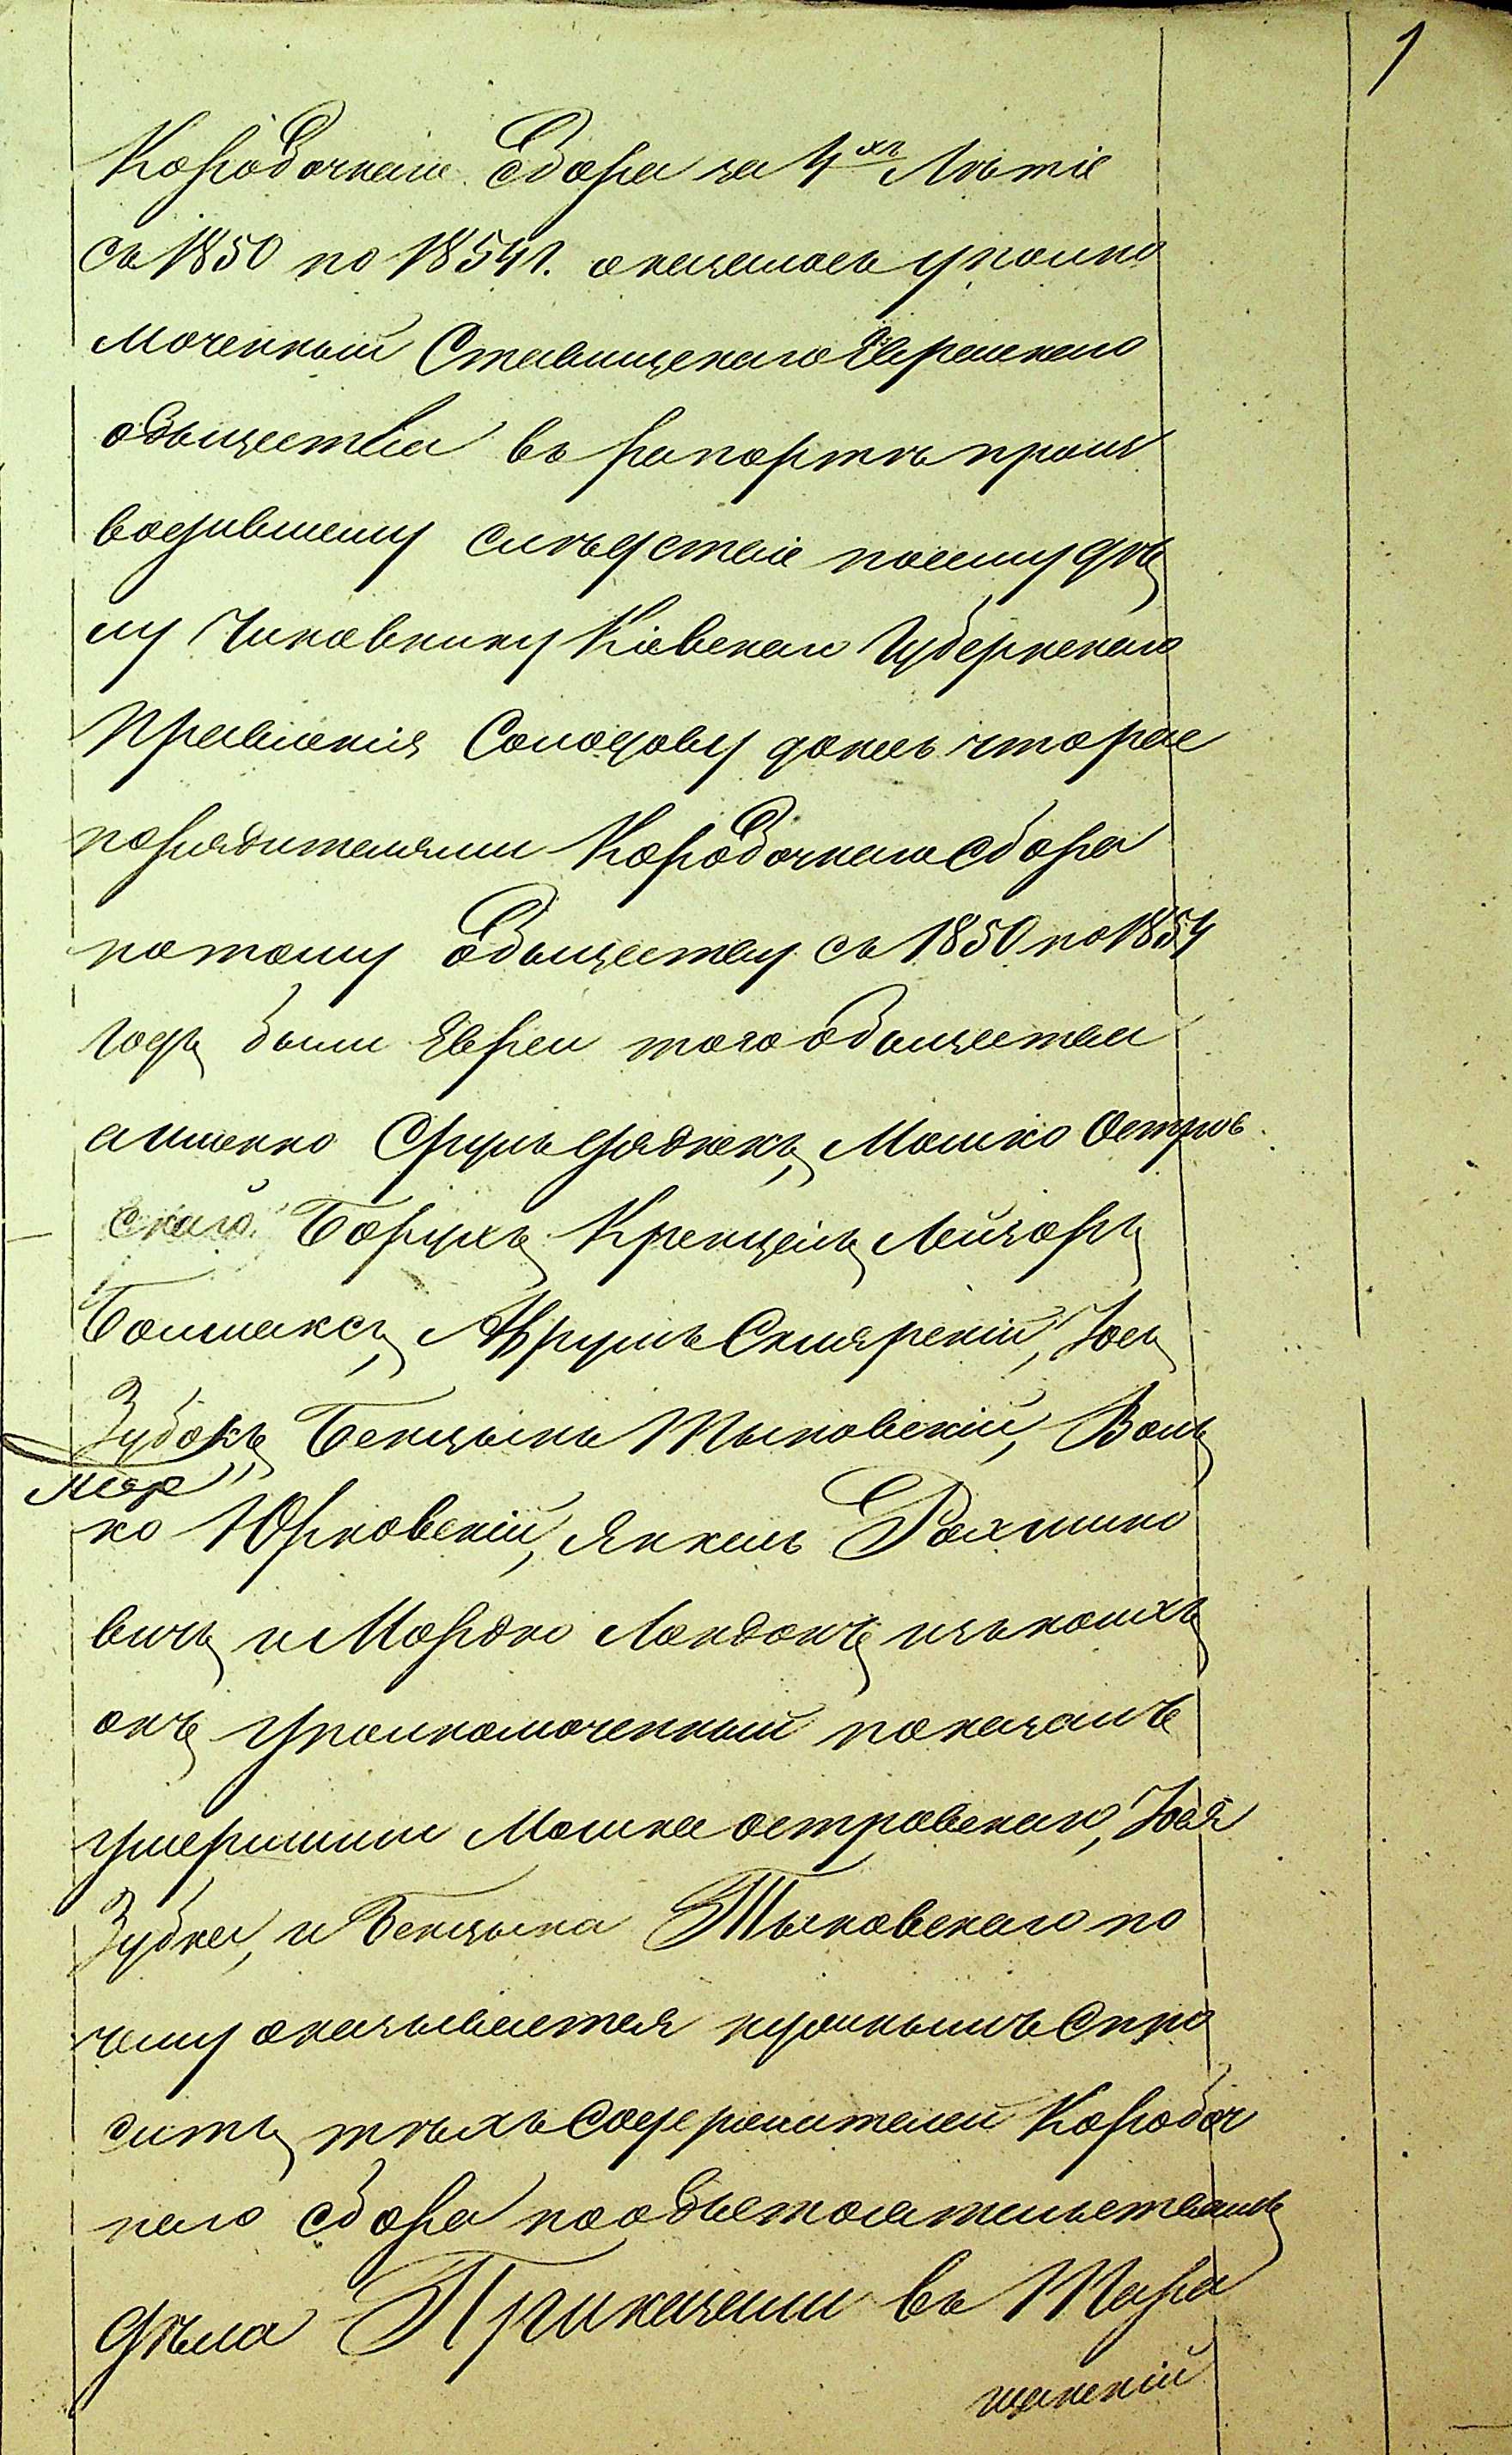 1
Коробочнаго Сбора за 4хъ Лѣтіе
съ 1850 по 1854 г. оказалось уполно
моченный Ставищскаго Еврейскаго
общества въ рапортѣ произ
водившему слѣдствіе поему дѣ
лу Чиновнику Кіевскаго Губернскаго
Правленія Солодову донесъ что рас
порядителями Коробочнаго сбора
потому Обществу съ 1850 по 1854
годъ были Евреи того общества
а именно Сруль Мошко Остров
скаго Борухъ Кренцель, Лейзоръ
Болшаксъ, Аврумъ Склярскій, Іось
Зубокъ, Бенцыонъ Тыновскій, Воль
мар
ко Юрковскій, Янкель Рахмино
вичъ и Мордко Лондонъ изъ коихъ
онъ уполномоченный показалъ
умершими Мошка островскаго, Іося
Зубка, и Бенцыона Тыновскаго по
чему оказывается нужнымъ Спро
сить тѣхъ Содержателей Коробоч
наго сбора пообстоятельствамъ
дѣла Приказали въ Тара
щанскій